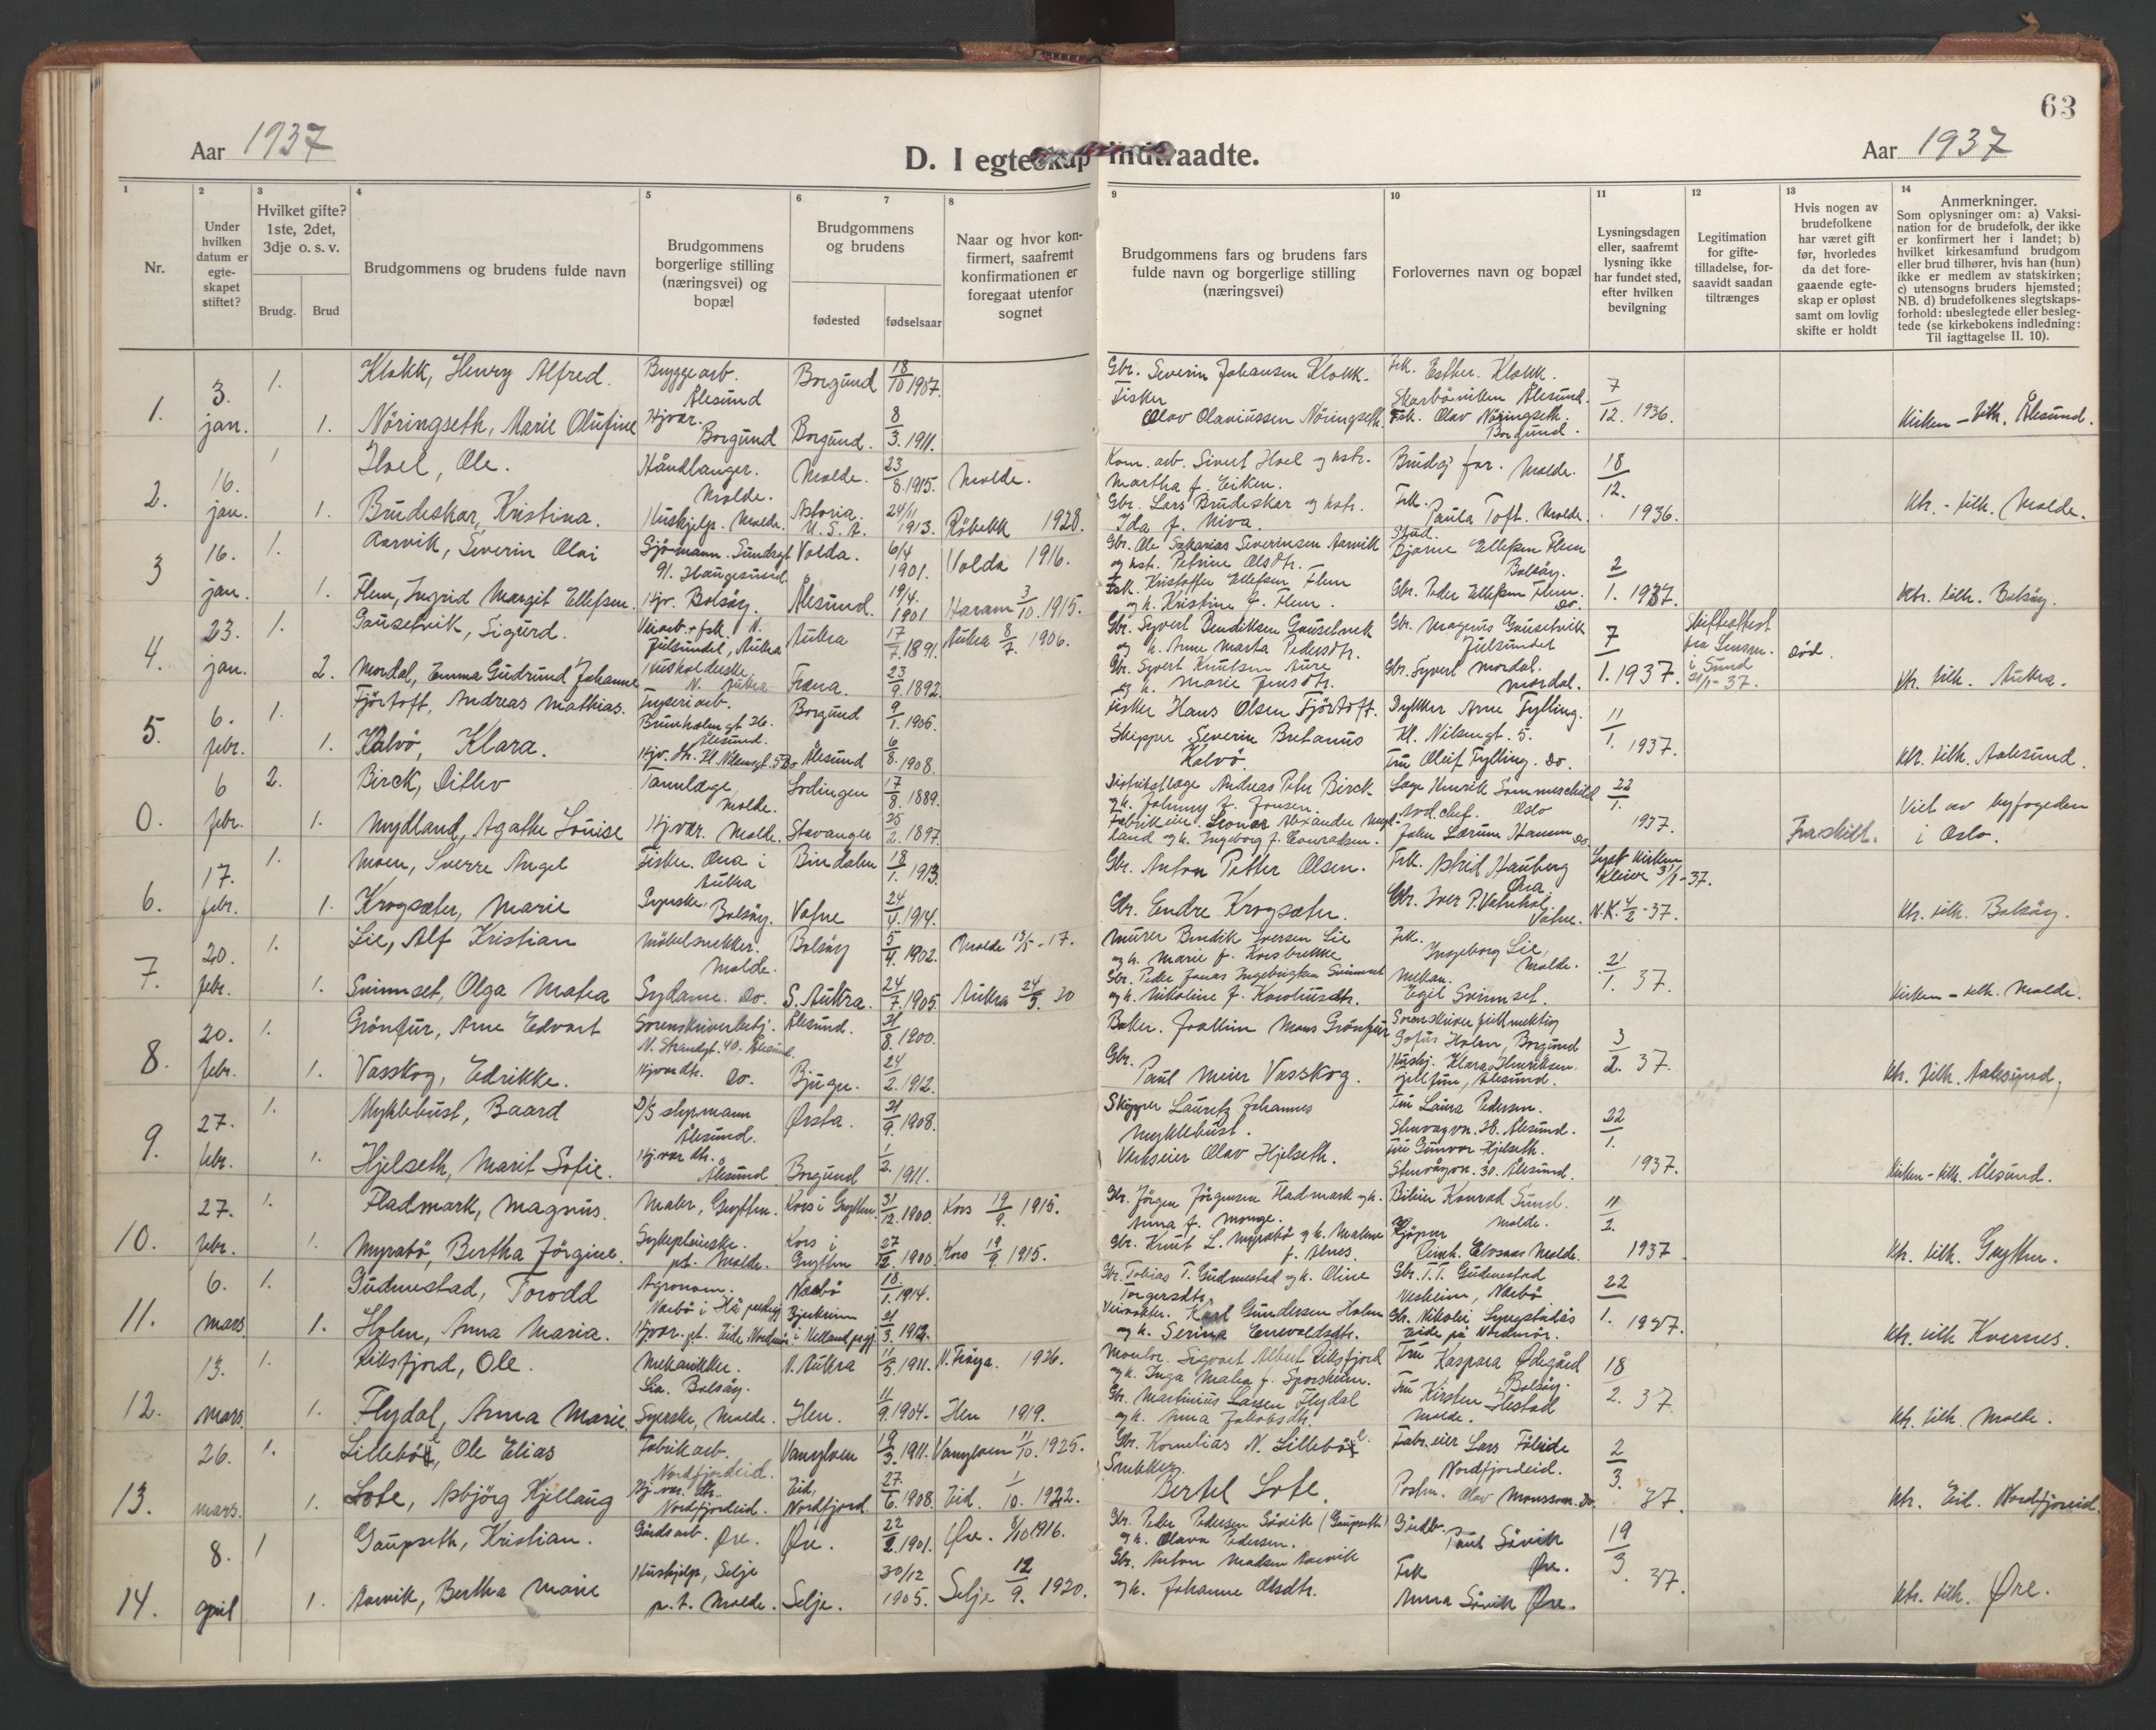 63
Aar 1937
D. I egteskap indtraadte.
Aar 1937
1
2
3
4
5
6
7
8
9
10
11
12
13
14
Nr.
Under hvilken datum er egte-skapet stiftet?
Hvilket gifte? 1ste, 2det, 3dje o. s. v.
Brudg.
Brud
Brudgommens og brudens fulde navn
Brudgommens borgerlige stilling (næringsvei) og bopæl
Brudgommens og brudens
fødested
fødselsaar
Naar og hvor kon-firmert, saafremt konfirmationen er foregaat utenfor sognet
Brudgommens fars og brudens fars fulde navn og borgerlige stilling (næringsvei)
Forlovernes navn og bopæl
Lysningsdagen eller, saafremt lysning ikke har fundet sted, efter hvilken bevilgning
Legitimation for gifte-tilladelse, for-saavidt saadan tiltrænges
Hvis nogen av brudefolkene har været gift før, hvorledes da det fore-gaaende egte-skap er opløst samt om lovlig skifte er holdt
Anmerkninger.
Som oplysninger om: a) Vaksi-nation for de brudefolk, der ikke er konfirmert her i landet; b) hvilket kirkesamfund brudgom eller brud tilhører, hvis han (hun) ikke er medlem av statskirken; c) utensogns bruders hjemsted; NB. d) brudefolkenes slegtskaps-forhold: ubeslegtede eller besleg-tede (se kirkebokens indledning: Til iagttagelse II. 10).
1. 3. jan. 1. Klokk, Henry Alfred. Bryggearb. Ålesund Borgund 18/10 1907. Gbr. Severin Johansen Klokk. Fisker Frk. Esther Klokk. Skarbøviken Ålesund. 7/12. 1936.
1. Nöringseth, Marie Olufine Hjvær. Borgund Borgund. 8/3. 1911. Olav Olaviussen Nöringseth. Fsk. Olav Nöringseth. Borgund. Kirken - tilh. Ålesund.
2. 16. jan. 1 Hoel, Ole. Håndlanger. Molde. Molde. 23/8. 1915. Molde. Kom. arb. Sivert Hoel og hstr. Martha f. Eiken. Brudg. far. Molde. 18/12. 1936.
1. Budeskar, Kristina. Hushjelp. Molde. Astoria. U. S. A. 24/11 1913. Röbekk 1928. Gbr. Lars Brudeskar og hstr. Ida f. Niva. Frk. Paula Toft. Molde. Ktr. - tilh. Molde.
3 16. jan. 1. Aarvik, Severin Olai Sjömann. Sundsgt 91. Haugesund Volda. 6/4 1901. Volda 1916. Gbr. Ole Sakarias Severinsen Aarvik og hst. Petrine Olsdtr. Stud. Bjarne Ellefsen Flem Bolsöy. 2/1. 1937.
1. Flem, Ingrid Margit Ellefsen. Hjv. Bolsöy. Ålesund. 19/4. 1901 Haram 3/10. 1915. Fsk. Kristoffer Ellefsen Flem og h. Kristine f. Flem. Gbr. Peder Ellefsen Flem. Do. Ktr. tilh. Bolsöy.
4. 23. jan. 1. Gausetvik, Sigurd. Veiarb. + fsk. N. Julsundet, Aukra Aukra 17/7. 1891. Aukra 8/7. 1906. Gbr. Syvert Bendiksen Gausetvik og h. Anne Marta Pedersdtr. Gbr. Magnus Gausetvik Julsundet 7/1. 1937. Skifteattest fra Lensm. i Sund 21/1-37. död.
2. Mordal, Emma Gudrund Johanne Husholderske N. Aukra Fræna. 23/9. 1892. Gbr. Syvert Knutsen Aure og h. Marie Jensdtr. Gbr. Syvert Mordal. Mordal. Ktr. tilh. Aukra.
5. 6. febr. 1. Fjörtoft, Andreas Mathias. Fryseriarb. Brunholmgt. 26. Ålesund. Borgund 9/1. 1906. Fisker Hans Olsen Fjörtoft. Dykker Arne Fylling. Kl. Nilsengt. 5. 11/1. 1937.
1. Kalvö, Klara. Ålesund 6/8. 1908. Skipper Severin Bretanus Kalvö. Fru Oleif Fylling. Do. Ktr. tilh. Aalesund.
0. 6 febr. 2. Birck, Ditlev Tannlæge, Molde. Lödingen 17/8. 1889. Distriktslæge Andreas Peter Birck og h. Johnny f. Jonsen. Læge Henrik Sommerschild Oslo 22/1. 1937.
1. Mydland, Agathe Louise Hj.vær. Molde. Stavanger 25/2. 1897. Fabrikeier Leonar Alexander Mydland og h. Ingeborg f. Conradsen. Avd.chef. John Lærum Do. Fraskilt. Viet av byfogeden i Oslo.
6. 17. febr. 1. Moen, Sverre Angel Fisker. Ona i Aukra Bindalen 18/1. 1913. Gbr. Anton Petter Olsen. Frk. Astrid Hauberg Ona Lyst Kirken Kleive 31/1-37.
1. Krogsæter, Marie Syerske. Bolsöy. Vatne 24/4. 1914. Gbr. Endre Krogsæter. Gbr. Iver P. Vatnehol. Vatne. N.K. 4/2-37. Ktr. tilh. Bolsöy.
7. 20. febr. 1. Lie, Alf Kristian Möbelsnekker. Molde. Bolsöy 5/4. 1902. Molde 13/5-17. Murer Bendik Iversen Lie og h. Marie f. Korsbrekke Frk. Ingeborg Lie, Molde. 21/1. 37.
1. Svinnset, Olga Matea Sydame. Do. S. Aukra. 24/7. 1905. Aukra 24/5. 20 Gbr. Peder Jonas Ingebrigtsen Svinnset og h. Nikoline f. Karoliusdtr. Mekan. Egil Svinnset. Kirken - tilh. Molde.
8. 20. febr. 1. Grönfur, Arne Edvart Sorenskriverbetj. N. Strandgt. 40. Ålesund. Ålesund. 21/8. 1900. Baker. Joakim Mons Grönfur Sorenskriver fullmektig Sofus Holen, Borgund 3/2. 37.
1. Vasskog, Edrikke. Hjværdtr. Do. Bjugn. 24/2. 1912. Gbr. Paul Meier Vasskog. Hushj. Klara Henriksen. Ålesund. Ktr. tilh. Aalesund.
9. 27. febr. 1. Myklebust, Baard D/S styrmann Ålesund. Ørsta. 21/9. 1908. Skipper Lauretz Johannes Myklebust. Fru Laura Pedersen. Ålesund. 22/1. 1937.
1. Hjelseth, Marit Sofie. Hj.vær dtr. Ålesund Borgund 1/2. 1911. Verkseier Olav Hjelseth. Fru Gunvor Hjelseth. Stenvågvn. 30. Ålesund. Kirken - tilh. Ålesund.
10. 27. febr. 1. Fladmark, Magnus. Maler, Grytten. Kors i Grytten. 31/12. 1900. Kors 19/9. 1915. Gbr. Jörgen Jörgensen Fladmark og h. Anna f. Monge. Bileier Konrad Sund. Molde. 11/2. 1937
1. Myrabö, Bertha Jörgine. Sykepleierske. pt. Molde. Kors i Grytten 27/12. 1900. Kors 19/9. 1915. Gbr. Knut L. Myrabö og h. Malene f. Alnes. Kjöpm. Reinh. Elvsaas Molde. Ktr. tilh. Grytten.
11. 6. mars 1. Gudmestad, Torodd Agronom. Nærbö i Hå prestegj. Nærbö 18/1. 1914. Gbr. Tobias T. Gudmestad og h. Oline Torgersdtr. Gbr. T. T. Gudmestad Vesheim, Nærbö 22/1. 1937.
1. Holen, Anna Maria. Hjvær. pt. Eide Nordmöre Bjerkreim i Helland prgj. 21/3. 1912. Veivokter. Karl Gundersen Holen og h. Serina Enevoldsdtr. Gbr. Nikolai Lyngstadås Eide på Nordmör. Ktr. tilh Kvernes.
12. 13. mars. 1. Riksfjord, Ole. Mekanikker. Lia. Bolsöy. N. Aukra 11/5. 1911. N. Fræna. 1926. Montör. Sigvart Albert Riksfjord og h. Inga Malea f. Sporsheim. Fru Kaspara Ødegård Bolsöy. 18/2. 37
1. Flydal, Anna Marie Syerske, Molde. Hen. 11/9. 1904. Hen 1919. Gbr. Martinius Larsen Flydal og h. Anna Jakobsdtr. Fru Kirsten Ilestad Molde. Ktr. tilh. Molde.
13. 26. mars. 1. Lilleböe, Ole Elias Fabrikarb. Nordfjordeid. Vanylven 19/3. 1911. Vanylven 11/10. 1925. Gbr. Kornelias N. Lilleböe. Fabr. eier Lars Föleide Nordfjordeid. 2/3. 37.
1. Lote, Asbjörg Kjellaug Hj.vær. dtr. Nordfjordeid. Eid, Nordfjord 27/6. 1908. Eid. 1/10. 1922. Snekker. Bertel Lote. Postm. Olav Monsson. Do. Ktr. Eid. Nordfjoreid.
14. 8. april 1 Gaupseth, Kristian. Gårdsarb. Øre. Øre. 22/2. 1901. Øre. 8/10 1916. Gbr. Peder Pedersen Sövik (Gaupseth) og h. Olava Pedersen. Gårdb. Paul Sövik Øre. 19/3. 37.
1. Aarvik, Bertha Marie Hushjelp, Selje p. t. Molde. Selje. 30/12 1905. Selje 12/9. 1920. Gbr. Anton Madsen Aarvik og h. Johanne Olsdtr. Frk Anna Sövik Øre. Ktr. tilh. Øre.